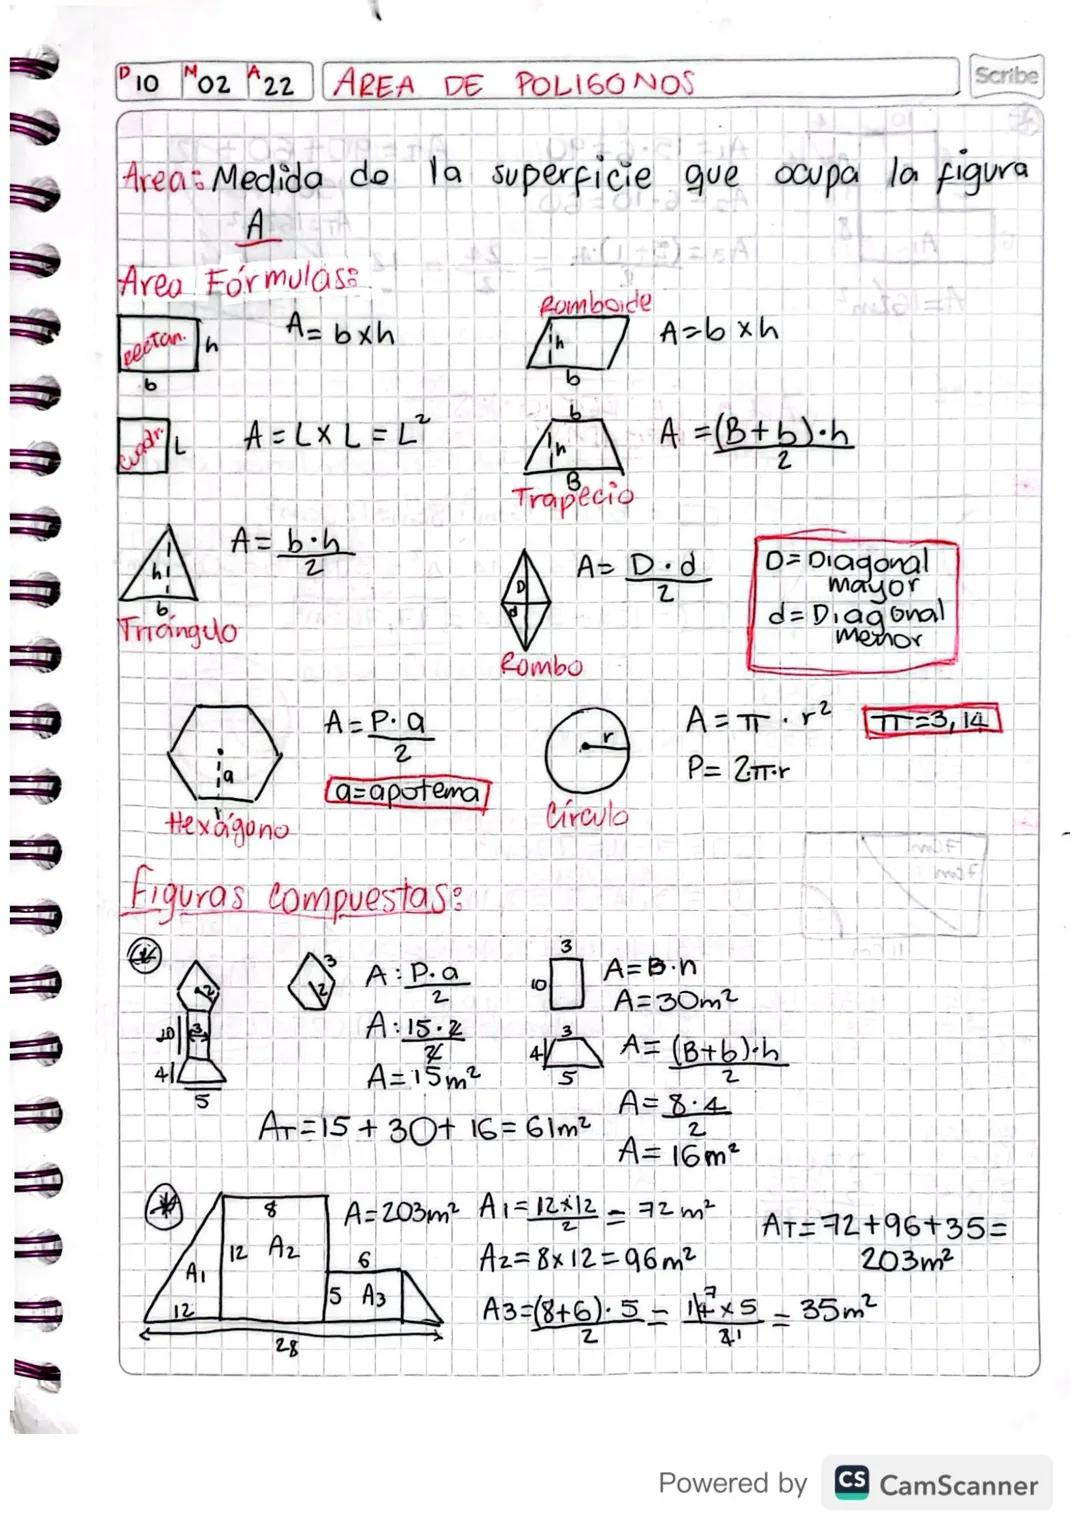 D 10 M 02 A 22 AREA DE POLIGONOS Scribe
Area: Medida de la superficie que ocupa la figura
A
Area Fórmulas:
rectan. h b A = b x h
Romboide h b A = b x h
cuadr. L A = L x L = L²
b h B Trapecio A = (B+b)·h / 2
h b Triángulo A = b·h / 2
D d Rombo A = D·d / 2
D = Diagonal mayor
d = Diagonal menor
a Hexágono A = P·a / 2
a = apotema
r Círculo A = π · r² π = 3,14
P = 2π·r
Figuras compuestas:
2 10 3 4 5
3 2 A: P·a / 2
A: 15·2 / 2
A = 15m²
3 10 A = B·h
A = 30m²
3 4 5 A = (B+b)·h / 2
A = 8·4 / 2
A = 16m²
AT = 15 + 30 + 16 = 61m²
8 12 A2 A1 12 6 5 A3 28
A = 203m²
A1 = 12x12 / 2 = 72 m²
A2 = 8x12 = 96m²
A3 = (8+6)·5 / 2 = 14 7 x 5 / 2 1 = 35m²
AT = 72+96+35 =
203m²
Powered by CS CamScanner